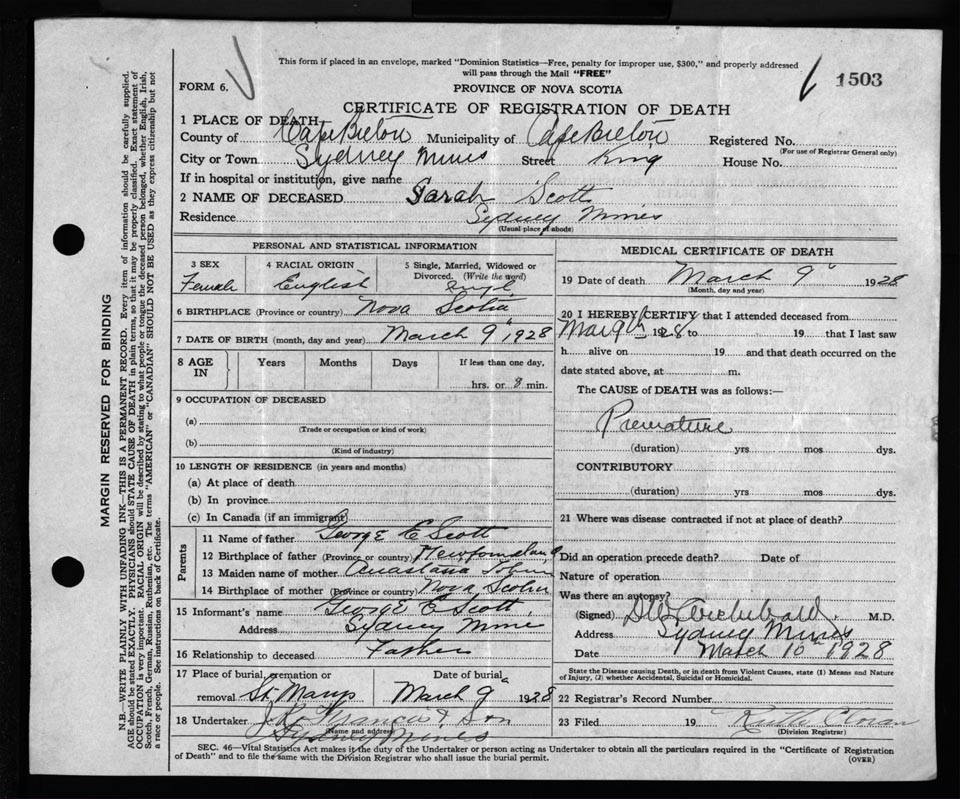 This form if placed in an envelope, marked "Dominion Statistics—Free, penalty for improper use, $300," and properly addressed
will pass through the Mail "FREE"
1503
FORM 6.
PROVINCE OF NOVA SCOTIA
CERTIFICATE OF REGISTRATION OF DEATH
1 PLACE OF DEATH
County of Cape Breton Municipality of Cape Breton Registered No.
(For use of Registrar General only)
City or Town Sydney Mines Street King House No.
If in hospital or institution, give name
2 NAME OF DECEASED Sarah Scott
Residence Sydney Mines
(Usual place of abode)
PERSONAL AND STATISTICAL INFORMATION
3 SEX 4 RACIAL ORIGIN 5 Single, Married, Widowed or
Divorced. (Write the word)
Female English Single
6 BIRTHPLACE (Province or country) Nova Scotia
7 DATE OF BIRTH (month, day and year) March 9" 1928
8 AGE IN Years Months Days If less than one day,
hrs. or 8 min.
9 OCCUPATION OF DECEASED
(a)
(Trade or occupation or kind of work)
(b)
(Kind of industry)
10 LENGTH OF RESIDENCE (in years and months)
(a) At place of death
(b) In province
(c) In Canada (if an immigrant)
Parents
11 Name of father George E Scott
12 Birthplace of father (Province or country) Newfoundland
13 Maiden name of mother Anastasia Tobin
14 Birthplace of mother (Province or country) Nova Scotia
15 Informant's name George E Scott
Address Sydney Mine
16 Relationship to deceased Father
17 Place of burial, cremation or Date of burial
removal St. Marys March 9" 1928
18 Undertaker & Son
(Name and address)
Sydney Mines
MEDICAL CERTIFICATE OF DEATH
19 Date of death March 9" 1928
(Month, day and year)
20 I HEREBY CERTIFY that I attended deceased from
Mar 9th 1928 to 19 that I last saw
h alive on 19 and that death occurred on the
date stated above, at m.
The CAUSE of DEATH was as follows:—
Premature
(duration) yrs mos dys.
CONTRIBUTORY
(duration) yrs mos dys.
21 Where was disease contracted if not at place of death?
Did an operation precede death? Date of
Nature of operation
Was there an autopsy?
(Signed) Archibald M.D.
Address Sydney Mines
Date March 10" 1928
State the Disease causing Death, or in death from Violent Causes, state (1) Means and Nature
of Injury, (2) whether Accidental, Suicidal or Homicidal.
22 Registrar's Record Number
23 Filed 19 Ruth
(Division Registrar)
SEC. 46—Vital Statistics Act makes it the duty of the Undertaker or person acting as Undertaker to obtain all the particulars required in the "Certificate of Registration
of Death" and to file the same with the Division Registrar who shall issue the burial permit.
(OVER)
MARGIN RESERVED FOR BINDING
N.B.—WRITE PLAINLY WITH UNFADING INK—THIS IS A PERMANENT RECORD. Every item of information should be carefully supplied.
AGE should be stated EXACTLY. PHYSICIANS should STATE CAUSE OF DEATH in plain terms, so that it may be properly classified. Exact statement of
OCCUPATION is very important. RACIAL ORIGIN will be described by stating to what people or tongue the deceased person belonged, whether English, Irish,
Scotch, French, German, Russian, Ruthenian, etc. The terms "AMERICAN" or "CANADIAN" SHOULD NOT BE USED as they express citizenship but not
a race or people. See instructions on back of Certificate.